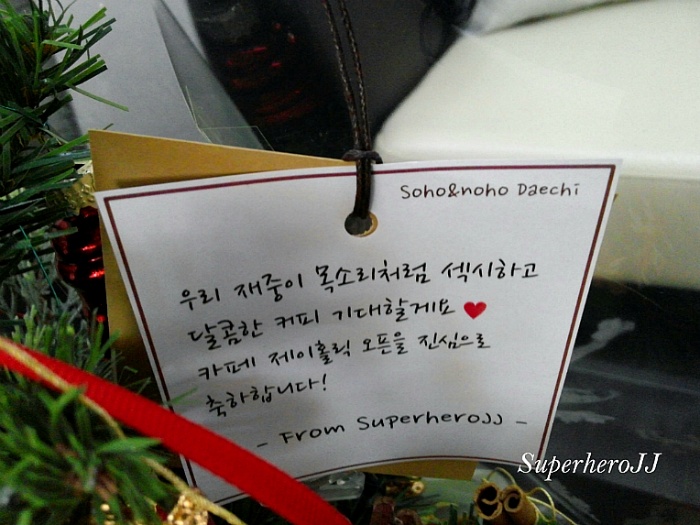 Soho&noho Daechi
우리 재중이 목소리처럼 섹시하고
달콤한 커피 기대할게요 ♥
카페 제이홀릭 오픈을 진심으로
축하합니다!
- From SuperheroJJ -
SuperheroJJ